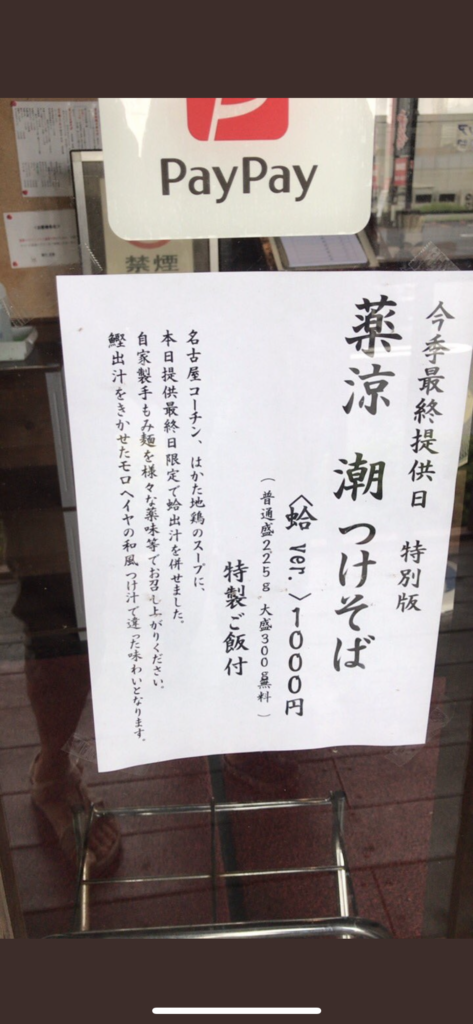 PayPay
禁煙
今季最終提供日　特別版
薬涼　潮つけそば
〈蛤 ver. 〉1000円
（ 普通盛225g 大盛300g無料 ）
特製ご飯付
名古屋コーチン、はかた地鶏のスープに、
本日提供最終日限定で蛤出汁を併せました。
自家製手もみ麺を様々な薬味等でお召し上がりください。
鰹出汁をきかせたモロヘイヤの和風つけ汁で違った味わいとなります。